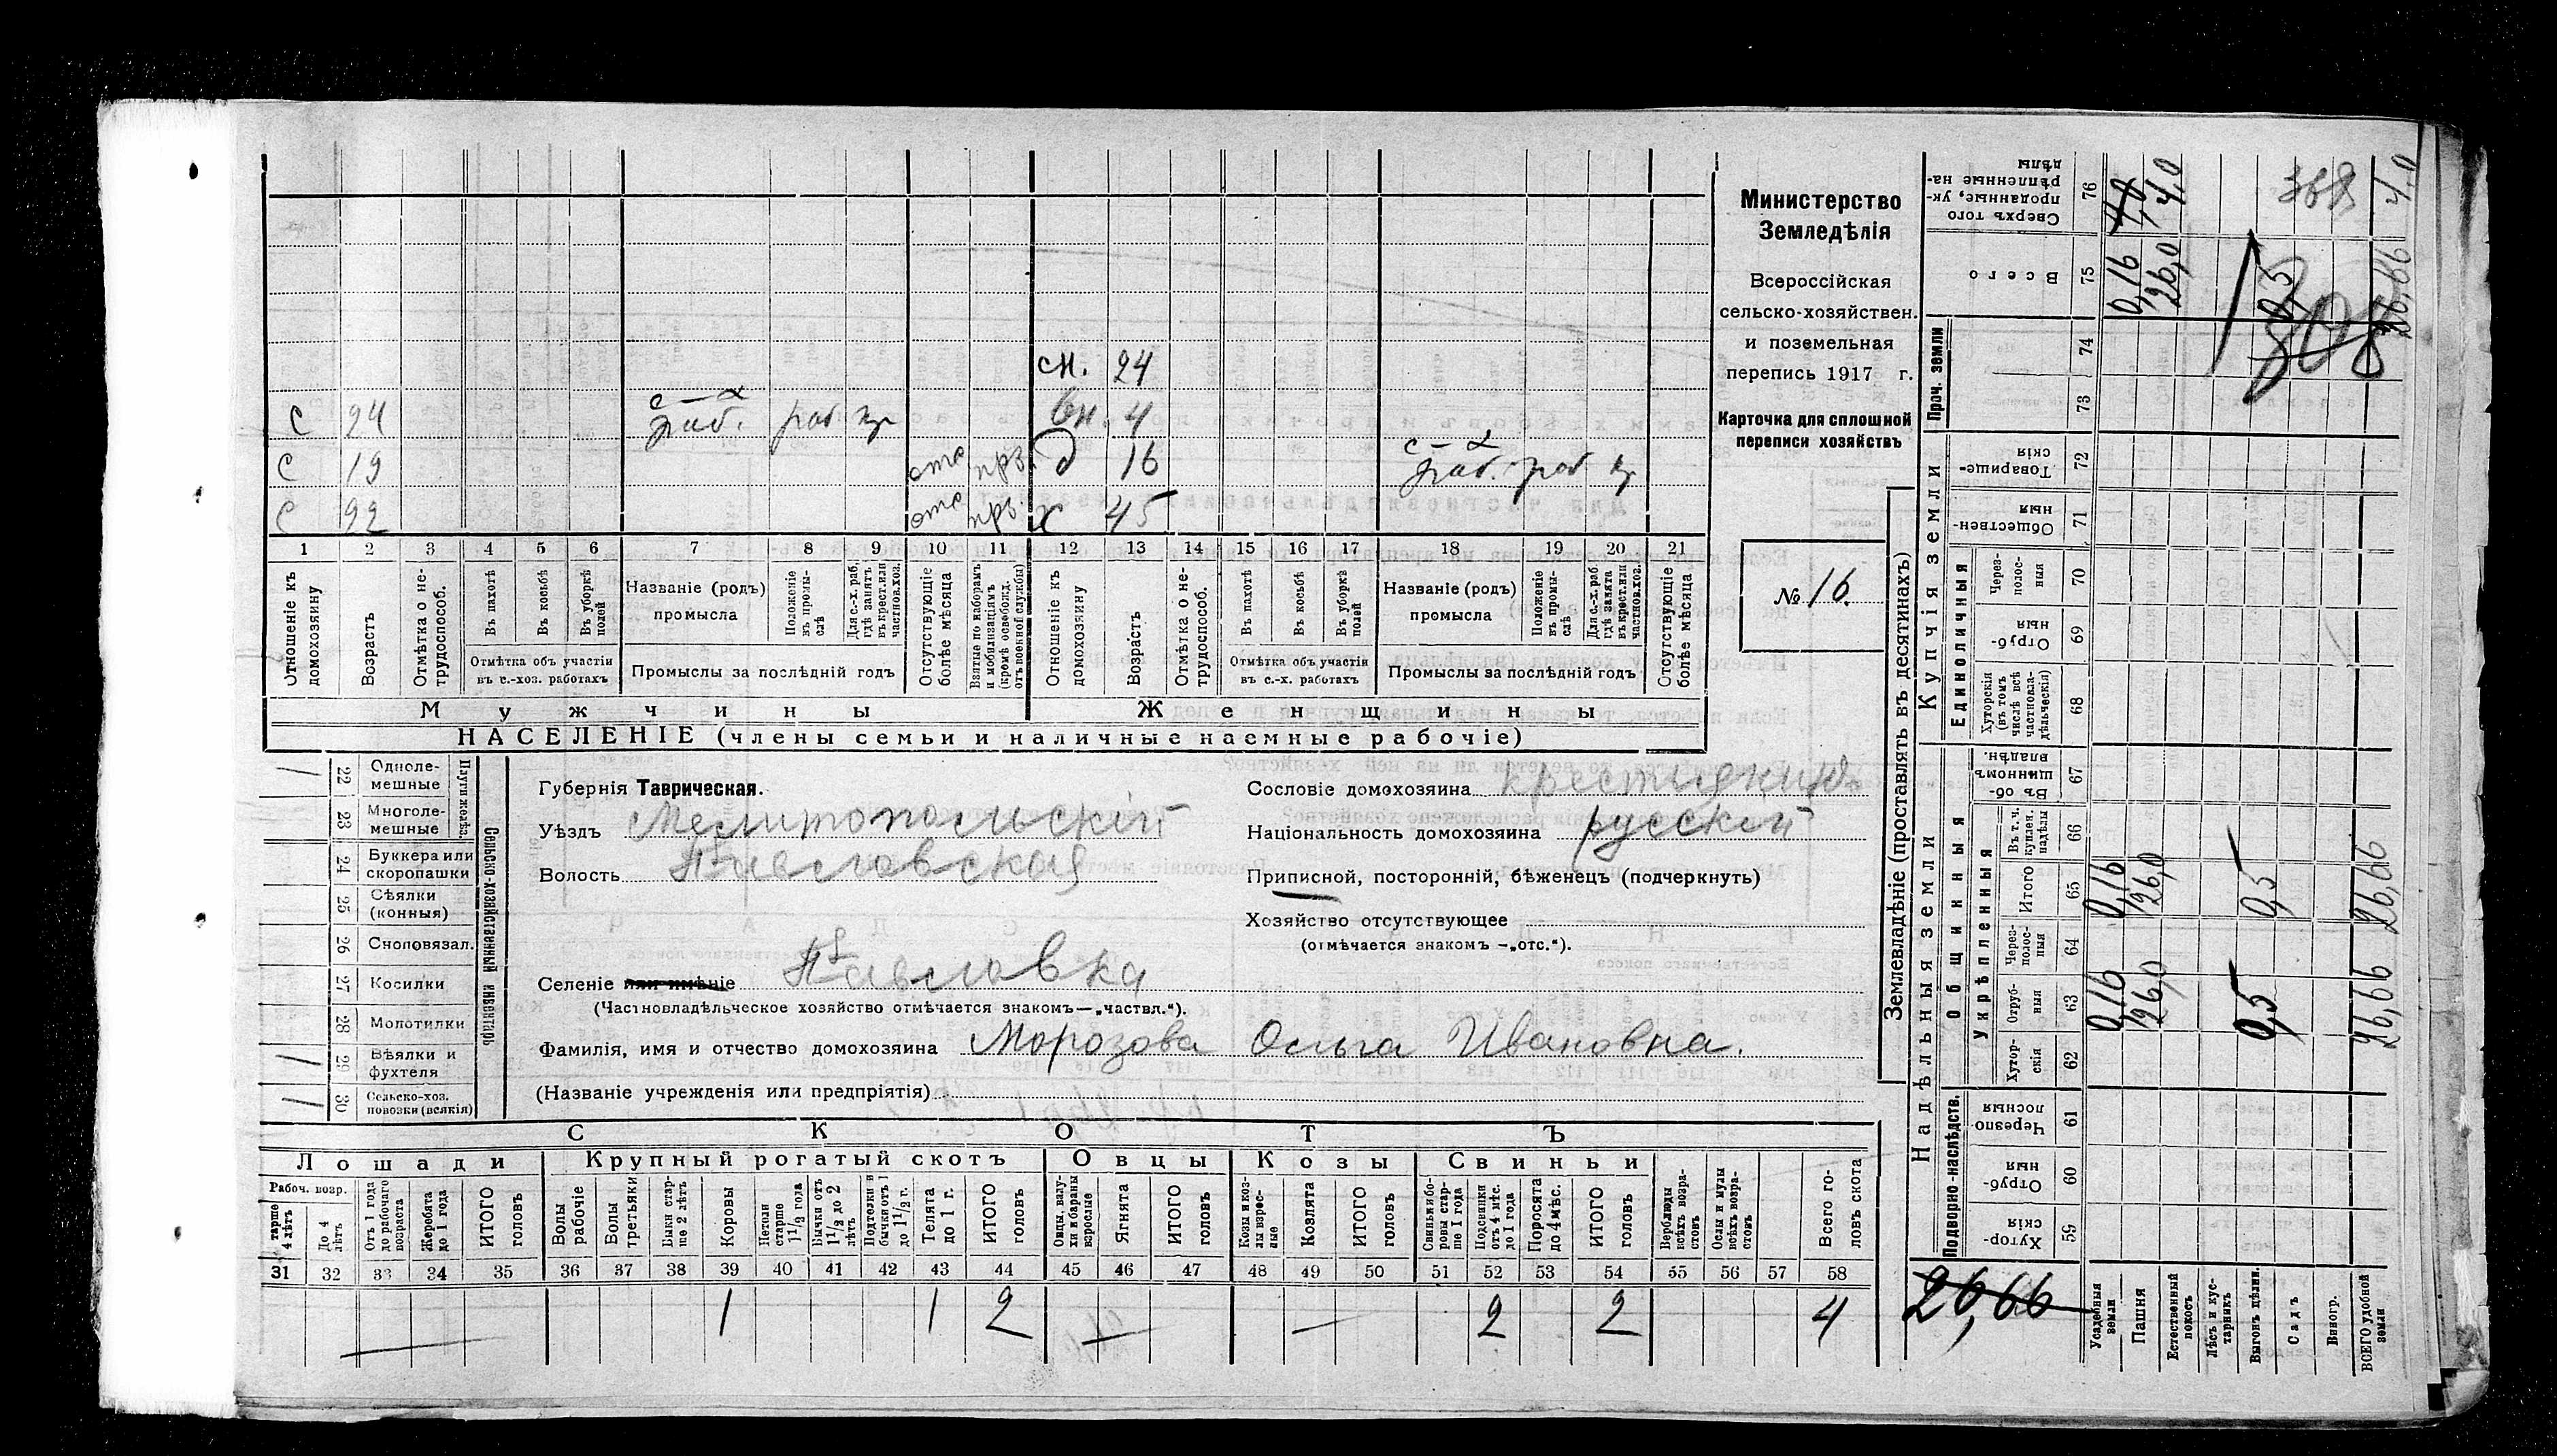 сн. 24
с 24 с–х раб. раб кр вн. 4
с 19 отс прз. д 16 с–х раб. раб кр
с 22 отс прз. х 45
1 2 3 4 5 6 7 8 9 10 11 12 13 14 15 16 17 18 19 20 21
Отношеніе къ домохозяину
Возрастъ
Отмѣтка о нетрудоспособ.
Въ пахотѣ
Въ косьбѣ
Въ уборкѣ полей
Отмѣтка объ участіи въ с.-хоз. работахъ
Названіе (родъ) промысла
Положеніе въ промыслѣ
Для с.-х. раб. гдѣ занятъ въ крест. или частнов. хоз.
Промыслы за послѣдній годъ
Отсутствующіе болѣе мѣсяца
Взятые по наборамъ и мобилизаціямъ (кромѣ освобожд. отъ военной службы)
Отношеніе къ домохозяину
Возрастъ
Отмѣтка о нетрудоспособ.
Въ пахотѣ
Въ косьбѣ
Въ уборкѣ полей
Отмѣтка объ участіи въ с.-х. работахъ
Названіе (родъ) промысла
Положеніе въ промыслѣ
Для с.-х. раб. гдѣ занята въ крест. или частнов. хоз.
Промыслы за послѣдній годъ
Отсутствующіе болѣе мѣсяца
Мужчины Женщины
НАСЕЛЕНІЕ (члены семьи и наличные наемные рабочіе)
Министерство
Земледѣлія
Всероссійская
сельско-хозяйствен.
и поземельная
перепись 1917 г.
Карточка для сплошной
переписи хозяйствъ
№ 16.
Сельско-хозяйственный инвентарь
Плуги желѣз.
22 Однолемешные /
23 Многолемешные
24 Буккера или скоропашки
25 Сѣялки (конныя)
26 Сноповязал.
27 Косилки
28 Молотилки
29 Вѣялки и фухтеля /
30 Сельско-хоз. повозки (всякія) /
Губернія Таврическая.
Уѣздъ Мелитопольскій
Волость Павловская
Селеніе или имѣніе Павловка
(Частновладѣльческое хозяйство отмѣчается знакомъ—„частвл.“).
Фамилія, имя и отчество домохозяина Морозова Ольга Ивановна.
(Названіе учрежденія или предпріятія)
Сословіе домохозяина крестьянинъ
Національность домохозяина русскій
Приписной, посторонній, бѣженецъ (подчеркнуть)
Хозяйство отсутствующее
(отмѣчается знакомъ —„отс.“).
СКОТЪ
Лошади Крупный рогатый скотъ Овцы Козы Свиньи
Рабоч. возр.
тарше 4 лѣтъ
До 4 лѣтъ
Отъ 1 года до рабочаго возраста
Жеребята до 1 года
ИТОГО головъ
Волы рабочіе
Волы третьяки
Быки старше 2 лѣтъ
Коровы
Нетели старше 1 1/2 года
Бычки отъ 1 1/2 до 2 лѣтъ
Подтелки и бычки отъ 1 до 1 1/2 г.
Телята до 1 г.
ИТОГО головъ
Овцы, валухи и бараны взрослые
Ягнята
ИТОГО головъ
Козы и козлы взрослые
Козлята
ИТОГО головъ
Свиньи боровы старше 1 года
Подсвинки отъ 4 мѣс. до 1 года
Поросята до 4 мѣс.
ИТОГО головъ
Верблюды всѣхъ возрастовъ
Ослы и мулы всѣхъ возрастовъ
Всего головъ скота
31 32 33 34 35 36 37 38 39 40 41 42 43 44 45 46 47 48 49 50 51 52 53 54 55 56 57 58
— 1 1 2 — — 2 2 4
Землевладѣніе (проставлять въ десятинахъ)
Надѣльныя земли
Купчія земли
Проч. земли
Подворно-наслѣдств.
Общинныя
Укрѣпленныя
Единоличныя
Хуторскія 59
Отрубныя 60
Черезполосныя 61
Хуторскія 62
Отрубныя 63
Черезполосныя 64
Итого 65
Въ т. ч. куплен. надѣлы 66
Въ общинномъ владѣн. 67
Хуторскія (въ томъ числѣ всѣ частновладѣльческія) 68
Отрубныя 69
Черезполосныя 70
Общественныя 71
Товарищескія 72
73
74
Всего 75
Сверхъ того проданные, укрѣпленные надѣлы 76
Усадебныя земли 0,16 0,16 0,16
Пашня 26,0 26,0 26,0 4,0
Естественный покосъ
Лѣсъ и кустарникъ
Выгонъ цѣлин. 0,5 0,5 0,5
Садъ
Виногр.
ВСЕГО удобной земли 26,66 26,66 26,66 4,0
26,66